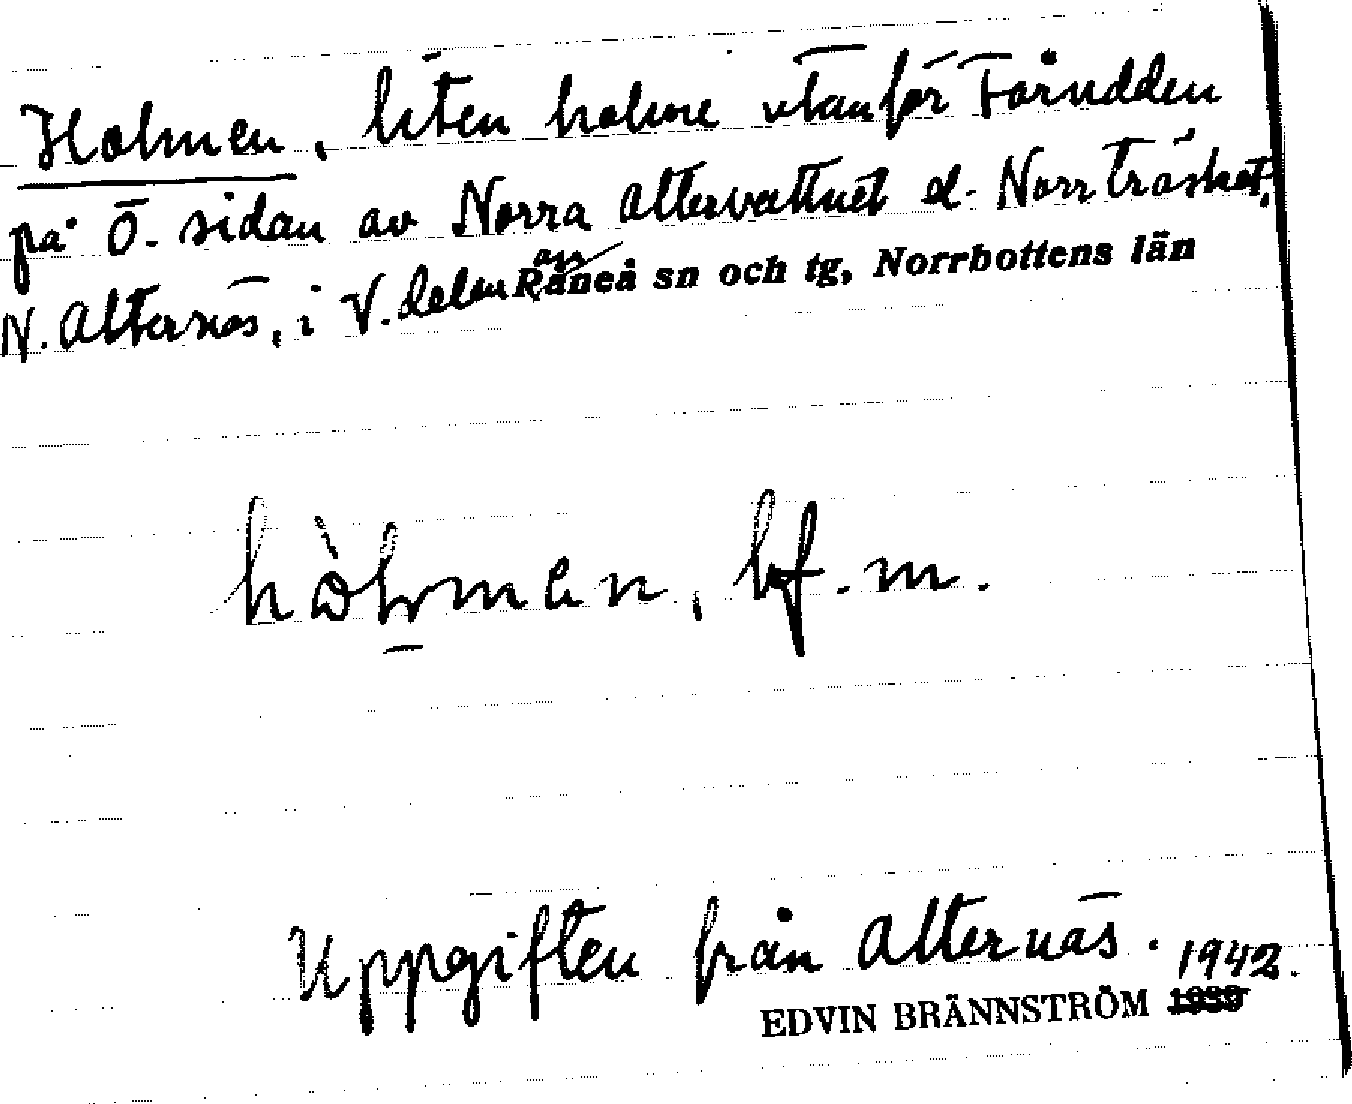 Holmen, liten holme utanför Fårudden
på Ö. sidan av Norra Altervattnet el. Norrträsket,
N. Alternäs, i V. delen av Råneå sn och tg, Norrbottens län
hòlman, bf. m.
Uppgiften från Alternäs. 1942.
EDVIN BRÄNNSTRÖM 1939